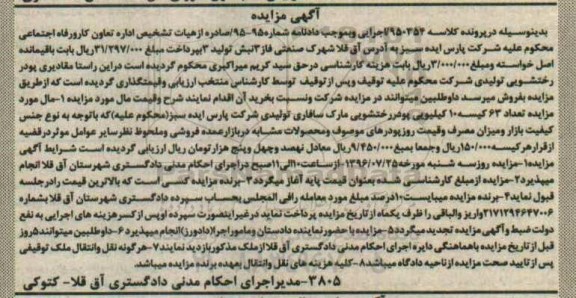 آگهی مزایده
بدینوسیله درپرونده کلاسه ۹۵۰۳۵۴/اجرایی وبموجب دادنامه شماره۹۵-۹۵/صادره ازهیات تشخیص اداره تعاون کارورفاه اجتماعی
محکوم علیه شرکت پارس ایده سبز به آدرس آق قلا شهرک صنعتی فاز۲نبش تولید ۳بپرداخت مبلغ ۳۱/۲۹۷/۰۰۰ریال بابت باقیمانده
اصل خواسته ومبلغ۳/۰۰۰/۰۰۰ریال بابت هزینه کارشناسی درحق سید کریم میراکبری محکوم گردیده است دراین راستا مقادیری پودر
رختشویی تولیدی شرکت محکوم علیه توقیف وپس ازتوقیف توسط کارشناس منتخب ارزیابی وقیمتگذاری گردیده است که ازطریق
مزایده بفروش میرسد داوطلبین میتوانند در مزایده شرکت ونسبت بخرید آن اقدام نمایند شرح وقیمت مال مورد مزایده ۱-مال مورد
مزایده تعداد ۶۳ کیسه۱۰ کیلویی پودررختشویی مارک سافاری تولیدی شرکت پارس ایده سبز(محکوم علیه)که باتوجه به نوع جنس
کیفیت بازار ومیزان مصرف وقیمت روزپودرهای موصوف ومحصولات مشابه دربازارعمده فروشی وملحوظ نظرسایر عوامل موثردرقضیه
ازقرارهرکیسه۱۵۰/۰۰۰ریال وجمعا بمبلغ۹/۴۵۰/۰۰۰ ریال معادل نهصد وچهل وپنج هزارتومان ریال ارزیابی گردیده است شرایط آگهی
مزایده۱-مزایده روزسه شنبه مورخه۱۳۹۶/۰۷/۲۵ ازساعت۱۰الی۱۱صبح دراجرای احکام مدنی دادگستری شهرستان آق قلا انجام
میپذیرد۲-مزایده ازمبلغ کارشناسی شده بعنوان قیمت پایه آغاز میگردد۳-برنده مزایده کسی است که بالاترین قیمت رادرجلسه
قبول نماید۴-برنده مزایده میبایست۱۰درصد مبلغ مورد معامله رافی المجلس بحساب سپرده دادگستری شهرستان آق قلا بشماره
۲۱۷۱۲۹۴۶۴۷۰۰۶واریز والباقی را ظرف یکماه ازتاریخ مزایده پرداخت نماید درغیراینصورت سپرده اوپس ازکسرهزینه های اجرایی به نفع
دولت ضبط وآگهی مزایده تجدید میگردد۵-مزایده با حضورنماینده دادستان وماموراجرا(دادورز)انجام میپذیرد۶-داوطلبین میتوانند۵روز
قبل ازتاریخ مزایده باهماهنگی دایره اجرای احکام مدنی دادگستری آق قلاازملک مذکوربازدید نمایند۷-هرگونه نقل وانتقال ملک توقیفی
پس ازتایید صحت مزایده ازناحیه دادگاه میباشد۸-کلیه هزینه های نقل وانتقال بعهده برنده مزایده میباشد.
۳۸۰۵-مدیراجرای احکام مدنی دادگستری آق قلا- کتوکی